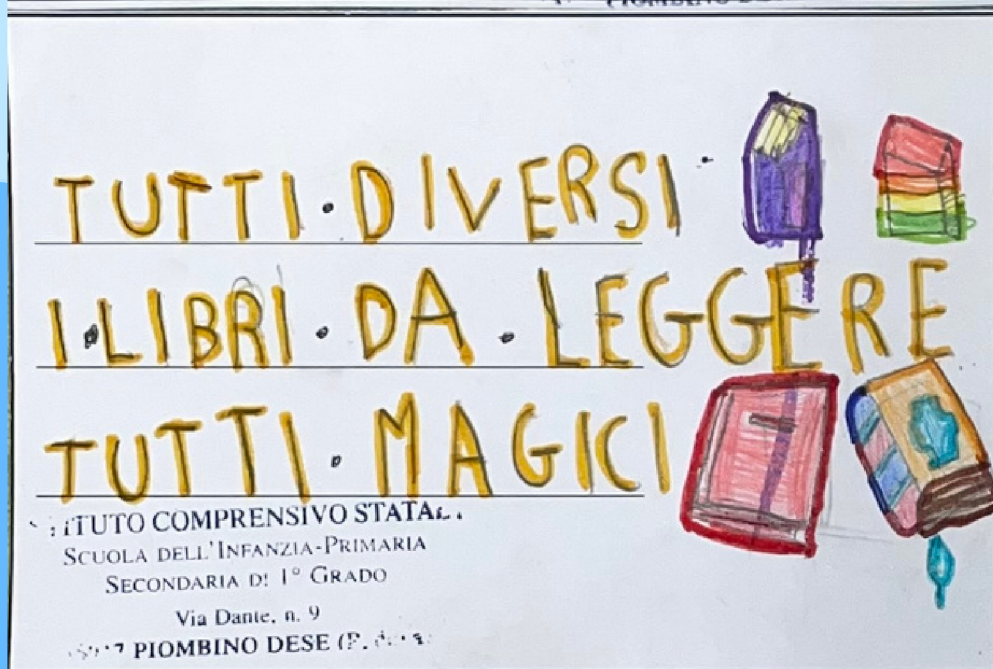 TUTTI·DIVERSI
I·LIBRI·DA·LEGGERE
TUTTI·MAGICI
COMPRENSIVO
SCUOLA DELL'INFANZIA-PRIMARIA
SECONDARIA DI 1° GRADO
Via Dante, n. 9
PIOMBINO DESE